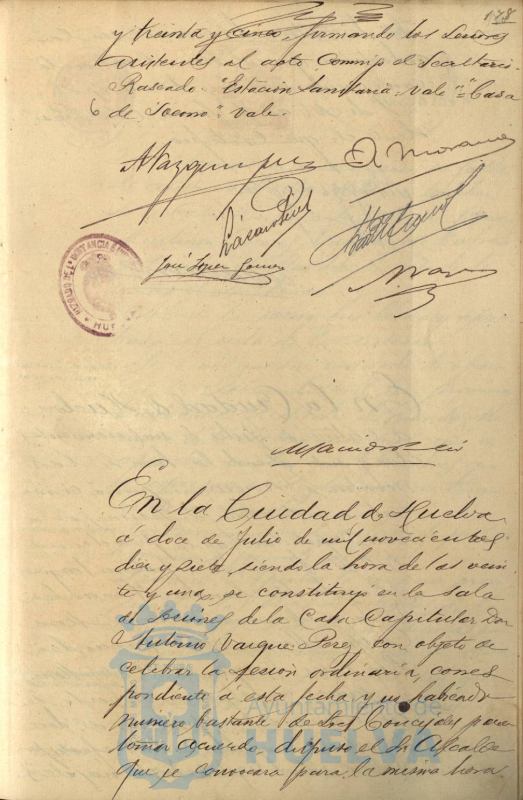 178
y treinta y cinco, firmando los Señores
asistentes al acto conmigo el Secretario.
Raspado = "Estacion Sanitaria = Vale" = "Casa
de Socorro" = Vale.
A Vazquez Perez
José Lopez Gomez
JUZGADO DE 1ª INSTANCIA
HUELVA
En la Ciudad de Huelva
á doce de Julio de mil novecientos
diez y siete siendo la hora de las vein
te y una, se constituyó en la sala
de Sesiones de la Casa Capitular Don
Antonio Vazquez Perez, con objeto de
celebrar la sesion ordinaria, corres
pondiente á esta fecha y no habiendo
numero bastante de Sres Concejales para
tomar acuerdo, dispuso el Sr Alcalde
que se convocara para la misma hora
Ayuntamiento de
HUELVA